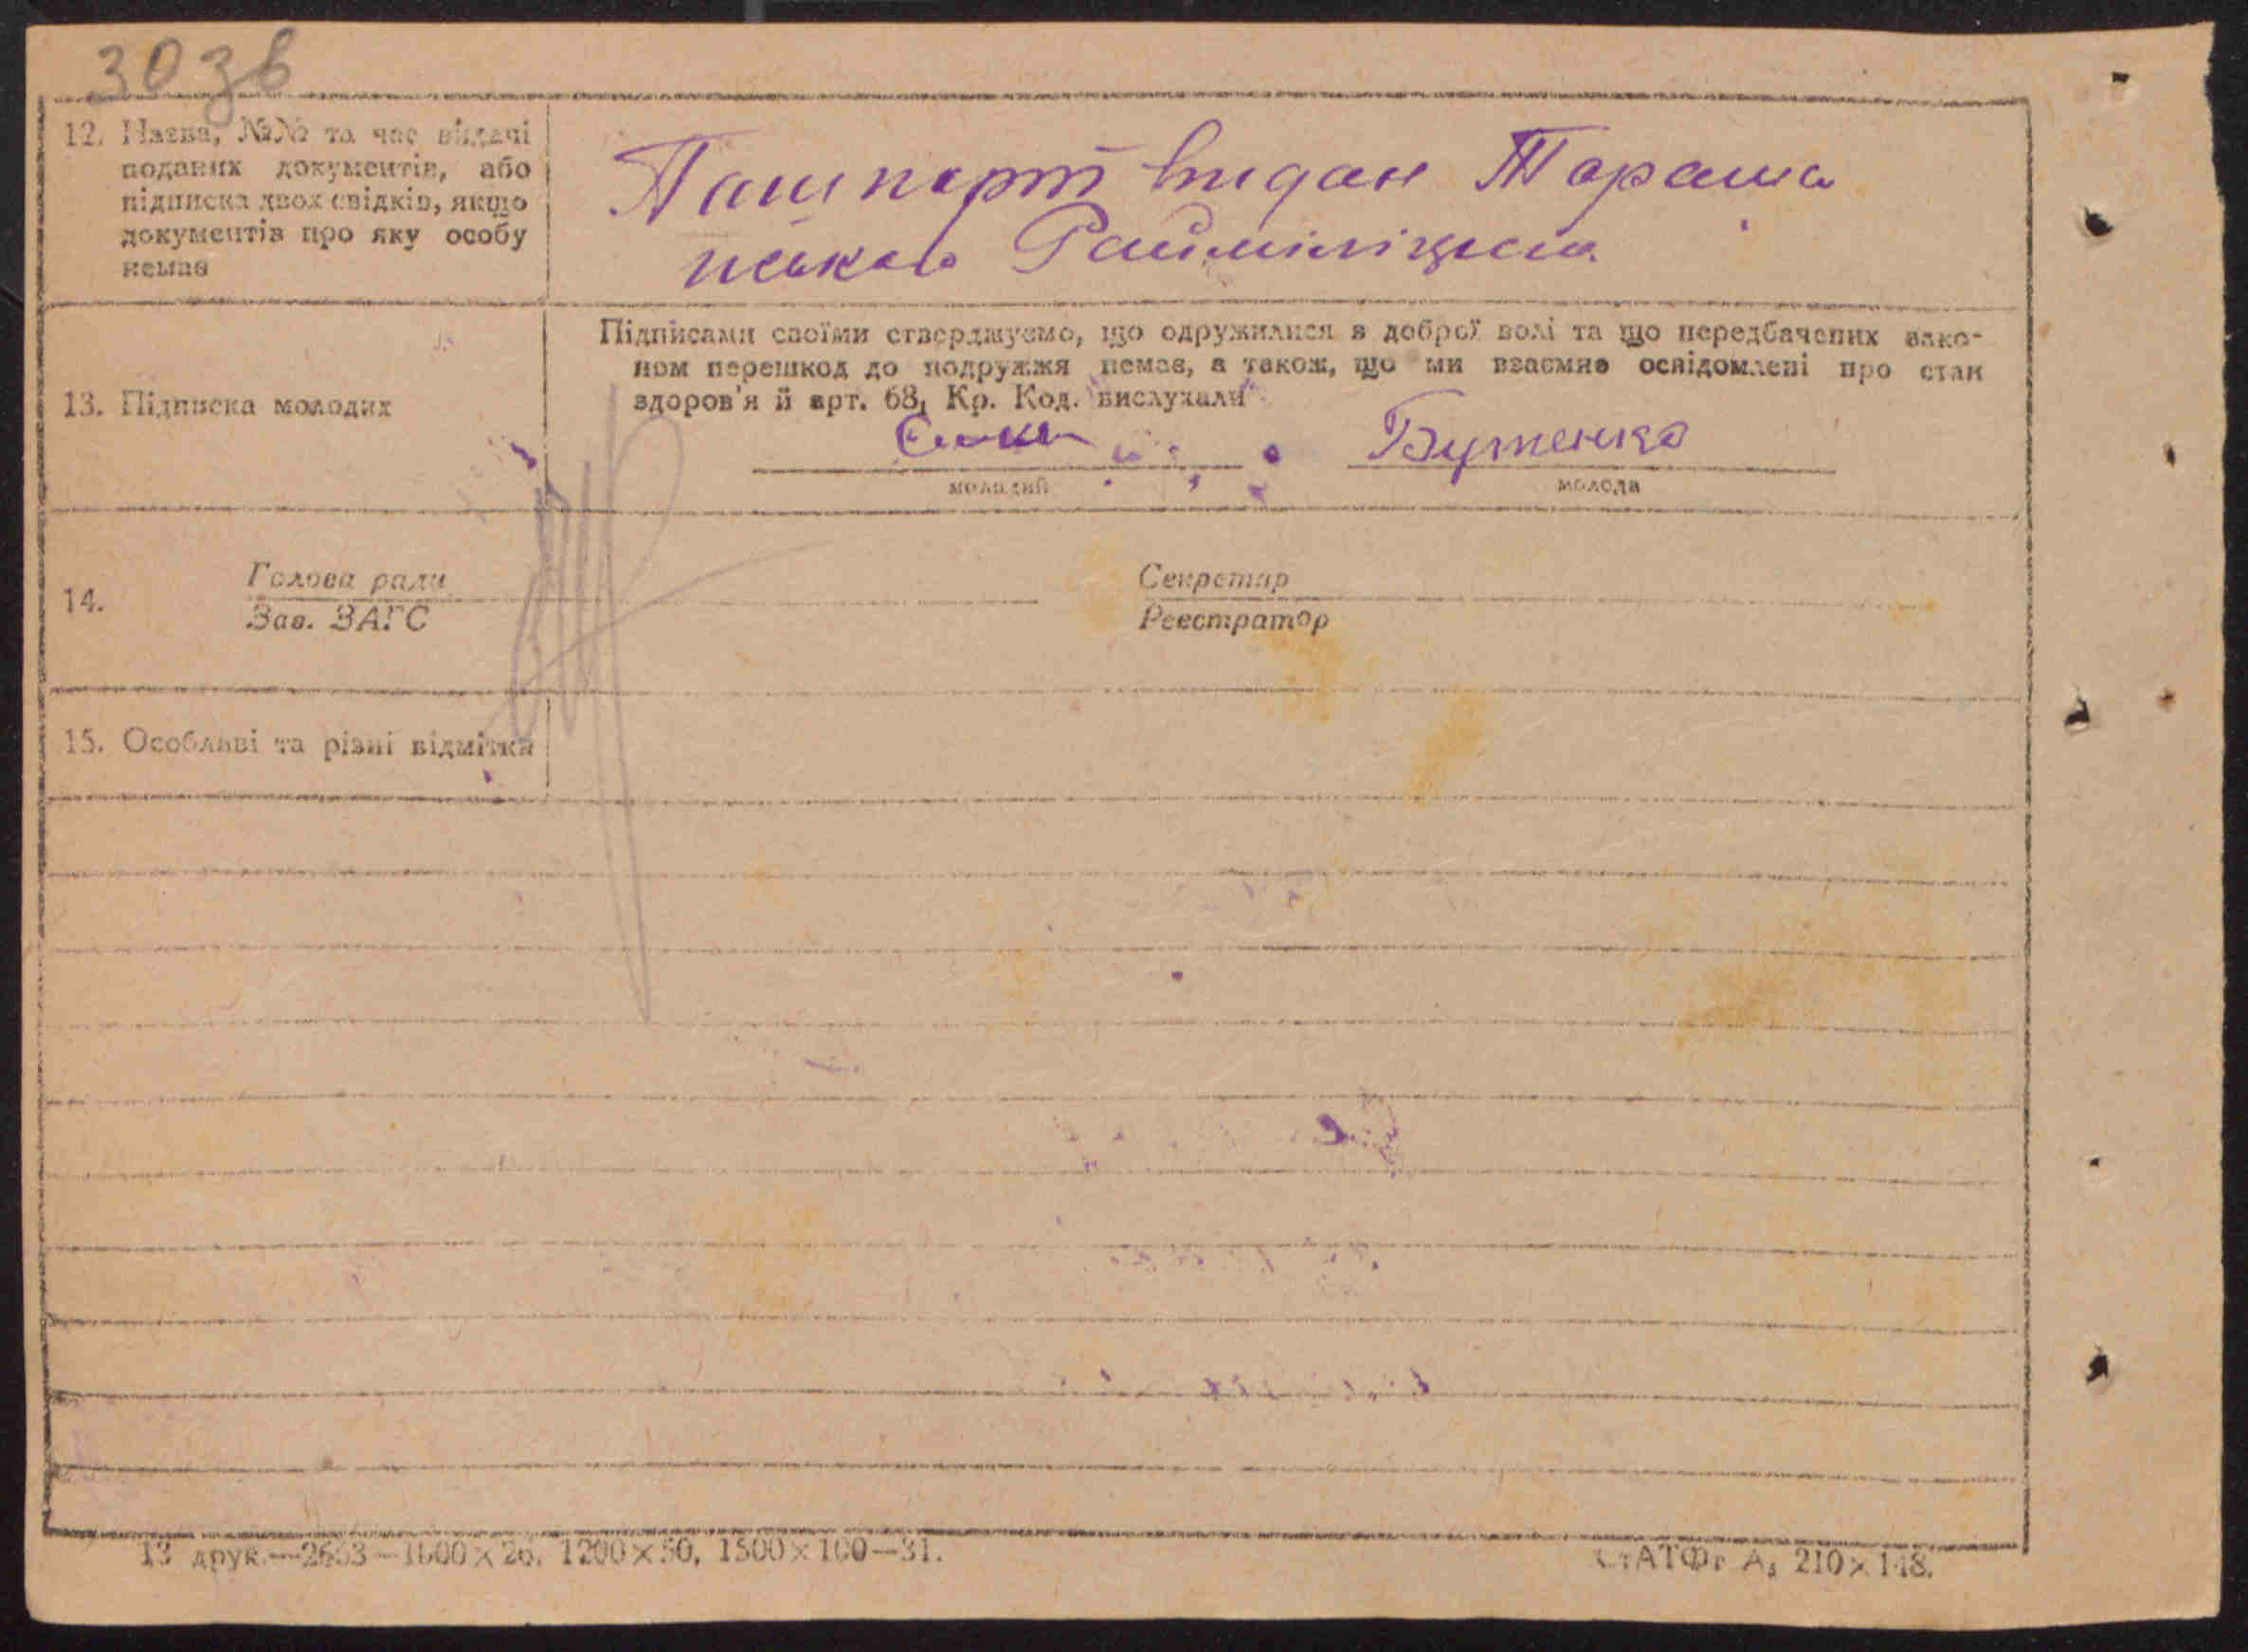 30зв
12. Назва, №№ та час видачі
поданих документів, або
підписка двох свідків, якщо
документів про яку особу
немає
Пашпорт видан Тараша
нською Райміліцією
13. Підписка молодих
Підписами своїми стверджуємо, що одружилися з доброї волі та що передбачених зако-
ном перешкод до подружжя немає, а також, що ми взаємно освідомлені про стан
здоров'я й арт. 68, Кр. Код. вислухали
Бутенко
молодий
молода
14.
Голова ради
Зав. ЗАГС
Секретар
Реєстратор
15. Особливі та різні відмітки
13 друк.—2663—1600×26, 1200×50, 1500×100—31.
А₅ 210×148.